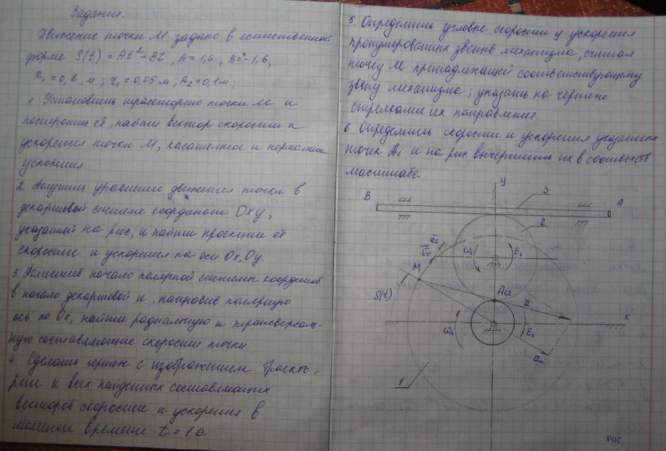 Задание.
Движение точки М задано в естественной
форме S(t) = At² + Bt, A = 1,6, B = -1,6,
R₁ = 0,2 м; r₁ = 0,05 м; R₂ = 0,1 м;
1. Установить траекторию точки М и
построить её, найти вектор скорости и
ускорения точки М, касательное и нормальное
ускорения
2. Получить уравнение движения точки в
декартовой системе координат Oxy,
указанной на рис, и найти проекции её
скорости и ускорения на оси Ox, Oy.
3. Поместив начало полярной системы координат
в начало декартовой и, направив полярную
ось по Ox, найти радиальную и трансверсаль-
ную составляющие скорости точки.
4. Сделать чертеж с изображением траекто-
рии и всех найденных составляющих
векторов скорости и ускорения в
момент времени t = 1 с
5. Определить угловые скорости и ускорения
пронумерованных звеньев механизма, считая
точку М принадлежащей соответствующему
звену механизма; указать на чертеже
стрелками их направления.
6. Определить скорости и ускорения указанных
точек и на рис вычертить их в соответств
масштабе.
y
B
3
A
2
M
S(t)
a
x
1
рис.